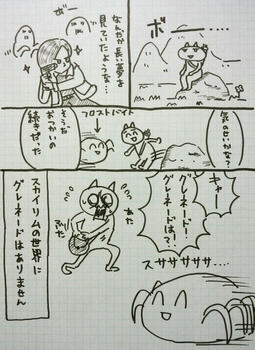 ボー……
ぼー
なんだか長い夢を
見ていたような…
気のせいかな?
フロストバイト
そうだ
おつかいの
続きだった
キャー
グレネード!
グレネードは?!
あた
ふた
スササササ……
スカイリムの世界に
グレネードはありません